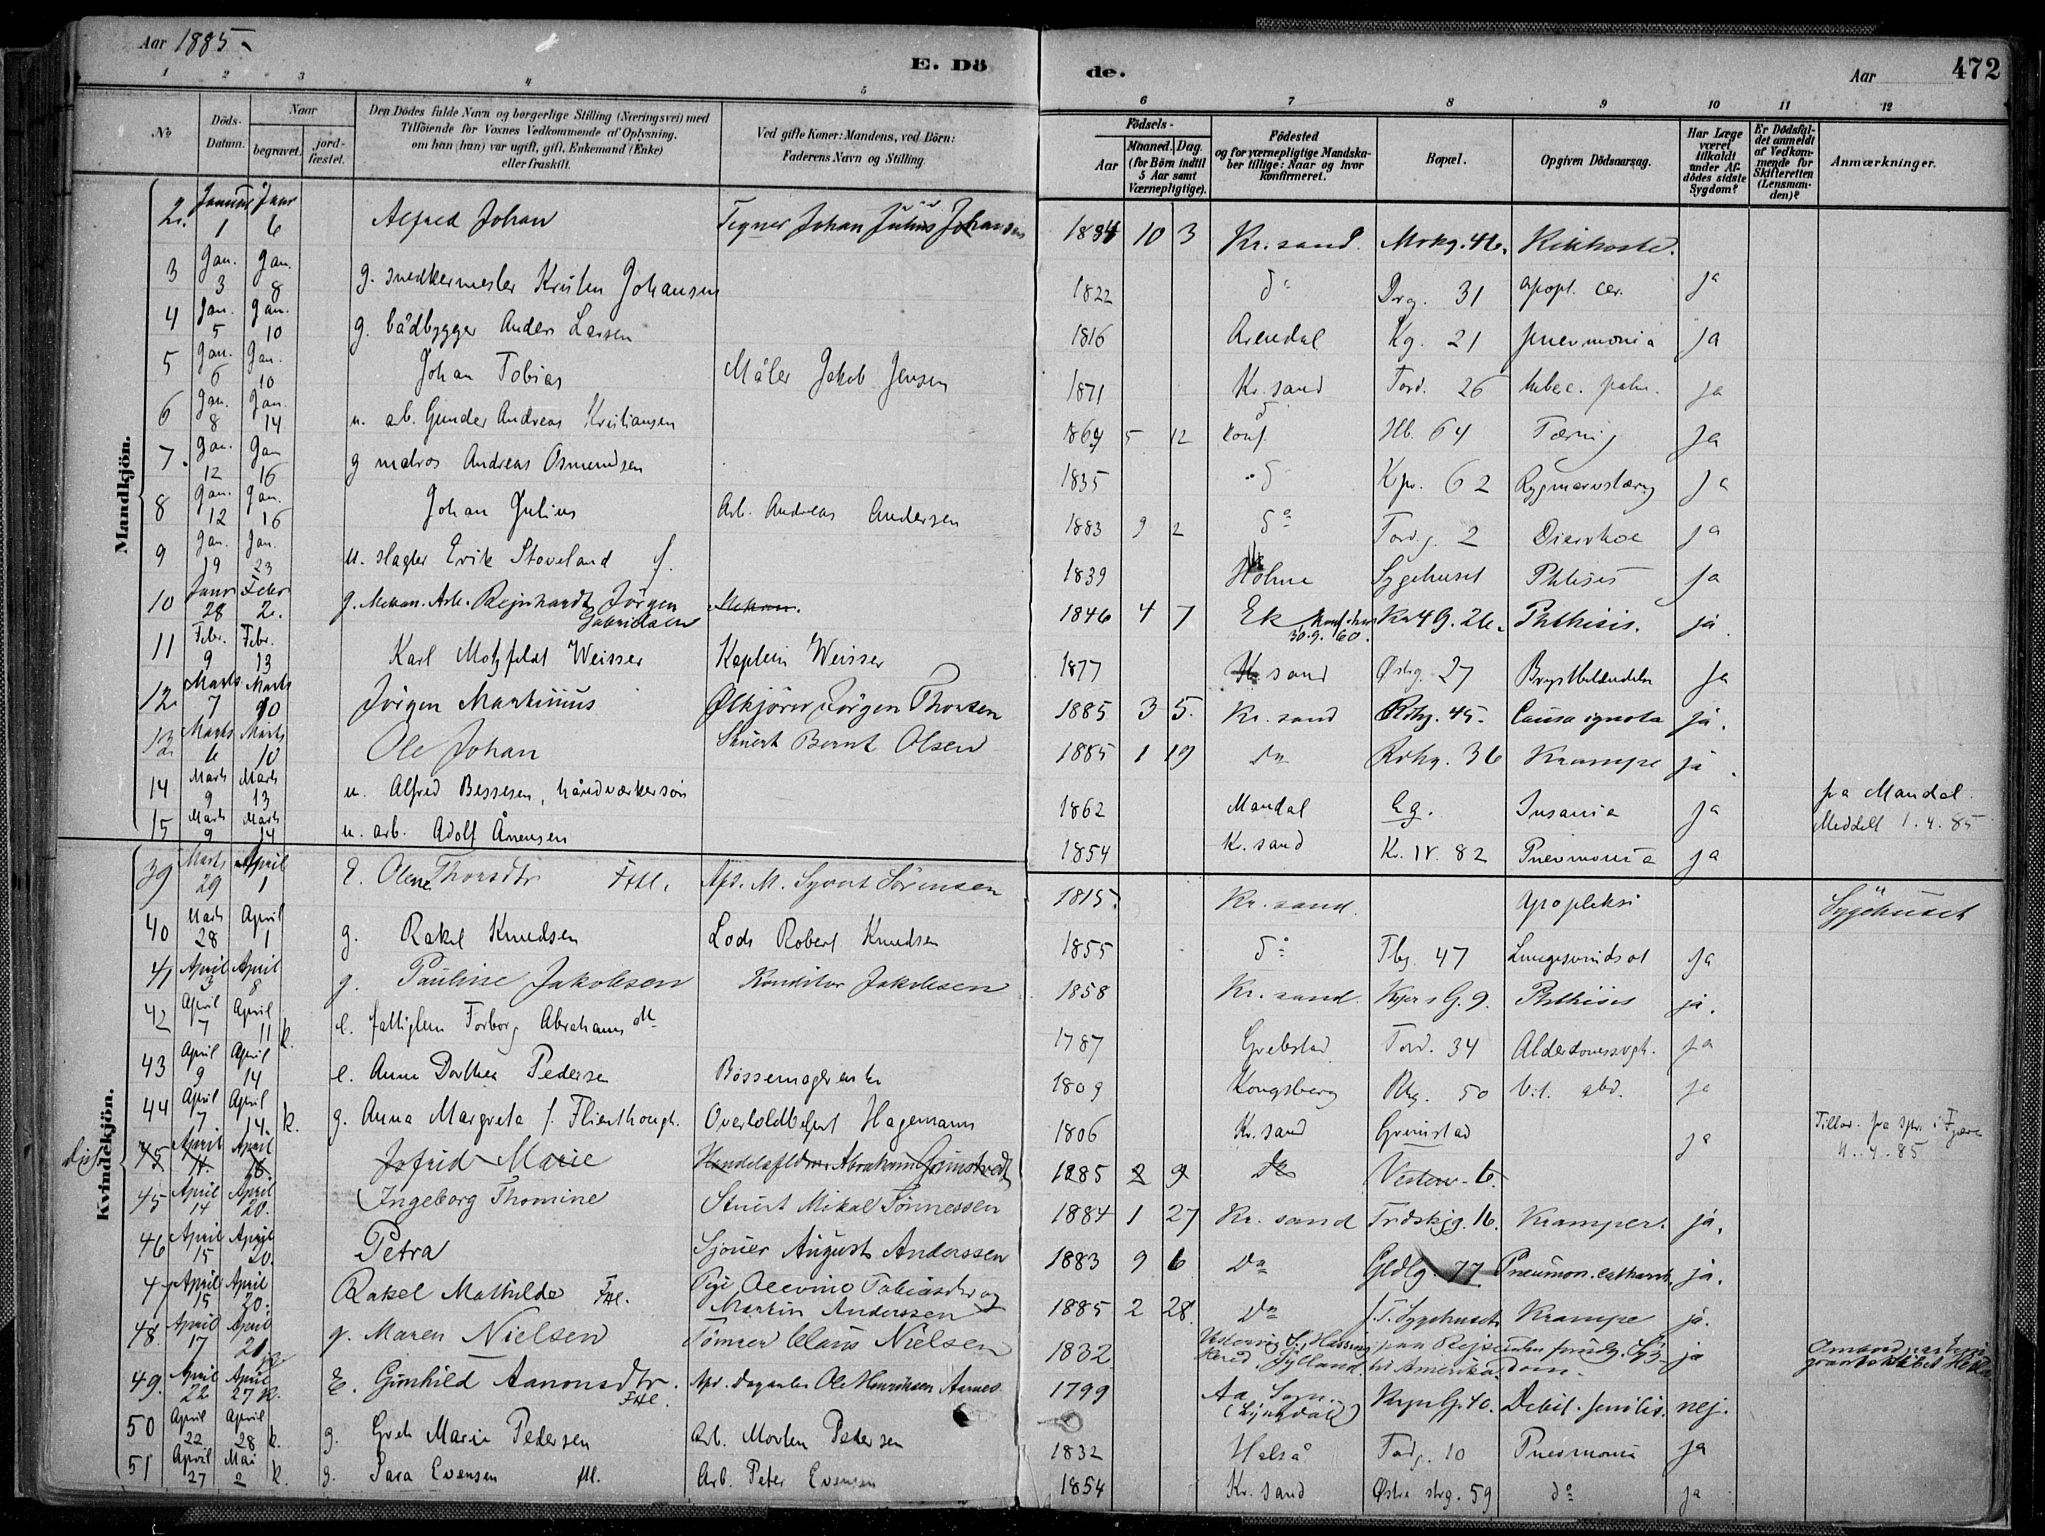 Aar 1885
E. Dö
de.
Aar
472
1 2 3 4 5 6 7 8 9 10 11 12
No
Döds-Datum.
Naar
begravet.
jord-fæstet.
Den Dödes fulde Navn og borgerlige Stilling (Næringsvei) med
Tilföiende for Voxnes Vedkommende af Oplysning,
om han (hun) var ugift, gift, Enkemand (Enke)
eller fraskilt.
Ved gifte Koner: Mandens, ved Börn:
Faderens Navn og Stilling.
Födsels-
Aar
Maaned. Dag.
(for Börn indtil
5 Aar samt
Værnepligtige).
Födested
og for værnepligtige Mandska-
ber tillige: Naar og hvor
Konfirmeret.
Bopæl.
Opgiven Dödsaarsag.
Har Læge
været
tilkaldt
under Af-
dödes sidste
Sygdom?
Er Dödsfal-
det anmeldt
af Vedkom-
mende for
Skifteretten
(Lensman-
den)?
Anmærkninger.
Mandkjön.
2. Januar 1 Janr 6 Alfred Johan Tegner Johan Julius Johansen 1884 10 3 Kr.sand. Kikhoste.
3 Jan. 3 Jan. 8 g. snedkermester Kristen Johansen 1822 do Drg. 31 apopl. cer. ja
4 Jan. 5 Jan. 10 g. bådbygger Anders Larsen 1816 Arendal Kg. 21 pneumonia ja
5 Jan. 6 Jan. 10 Johan Tobias Måler Jakob Jensen 1871 Kr.sand Tord. 26 tuberc. pulm. ja
6 Jan. 8 Jan. 14 u. arb. Gunder Andreas Kristiansen 1869 5 12 do Konf. Hb. 64 Tæring ja
7. Jan. 12 Jan 16 g matros Andreas Osmundsen 1835 do Kpr. 62 Rygmarvstæring ja
8 Jan. 12 Jan. 16 Johan Julius Arb. Andreas Andersen 1883 9 2 do Tordg. 2 Diarrhoe ja
9 Jan. 19 Jan. 23 u. slagter Erik Stoveland f. 1839 Holme Sygehuset Phtisis ja
10 Janr 28 Febr 2. g. Mekan. Arb. Rejnhardt Jörgen Gabrielsen 1846 4 7 Ek 30.9.60. Phthisis. ja
11 Febr. 9 Febr. 13 Karl Motzfeldt Weisser Kaptein Weisser 1877 Kr.sand Østrg. 27 Brystbetændelse ja
12 Marts 7 Marts 10 Jörgen Martinius Ølkjörer Jörgen Thorsen 1885 3 5. Kr.sand Rdhg. 45. Causa ignota ja.
13 Marts 6 Marts 10 Ole Johan Stuert Bernt Olsen 1885 1 19 Do Rdhg. 36 Krampe ja.
14 Marts 9 Marts 13 u. Alfred Bessesen, håndværkersøn 1862 Mandal Eg. Insania ja fra Mandal. Meddelt 1.4.85
15 Marts 9 Marts 14 u. arb. Adolf Ånensen 1854 Kr.sand Kr. IV. 82 Pneumonia ja
Kvindekjön.
39 Marts 29 April 1 E. Olene Thorsdtr FHl. Afd. M. Syvert Sörensen 1815 Kr.sand. apopleksi Sygehuset
40 Marts 28 April 1 g. Rakel Knudsen Lods Robert Knudsen 1855 do Tbg. 47 Lungesvindsot ja
41 April 3 April 8 g. Pauline Jakobsen Konditor Jakobsen 1858 Kr.sand. Kprs G. 9. Phthisis ja.
42 April 7 April 11 k. e. fattiglem Torborg Abrahamsdtr 1787 Grebstad Tord. 34 Alderdomssvgh. ja
43 April 9 April 14 e. Anne Dorthea Pedersen Bøssemager enke 1809 Kongsberg Rhg. 50 Vit. abd. ja
44 April 7 April 14. k. g. Anna Margreta f. Flienthough. Overtoldbetjent Hagemann 1806 Kr.sand Grimstad ja Tillad. fra spr. i Fjære 11.4.85
45 April 11 April 18. Jofrid Marie Handelsfldm. Abraham 1885 2 9 Do Vesterv. 6.
45 April 14 April 20. Ingeborg Thomine Stuert Mikal Tönnessen 1884 1 27 Kr.sand Trdskjg. 16. Kramper. ja.
46 April 15 April 20. Petra Sjöuer August Anderssen 1883 9 6 Do Gldlg. 77 Pneumon. catharrh. ja.
4 April 15 April 20. Rakel Mathilde FHl. Pige Olevine Tobiasdtr og Martin Anderssen 1885 2 28 Do f. T. Sygehuset Krampe ja.
48. April 17 April 21. g. Maren Nielsen Tömrer Claus Nielsen 1832 Jylland til Amerika ja
49. April 22 April 27 k. E. Gunhild Aanonsdtr. FHl. Afd. Dagarb. Ole Henriksen Aarnes 1799 Aa Sogn. (Lyngdal) Kprs G. 40. Debil. senilis. nej.
50 April 22 April 28 k. g. Greth Marie Pedersen Arb. Morten Pedersen 1832 Halså Tordg. 10 Pneumonia ja
51 April 27 Mai 2 k. g. Sara Evensen FHl. Arb. Peter Evensen 1854 Kr.sand Østre strg. 59 do ja